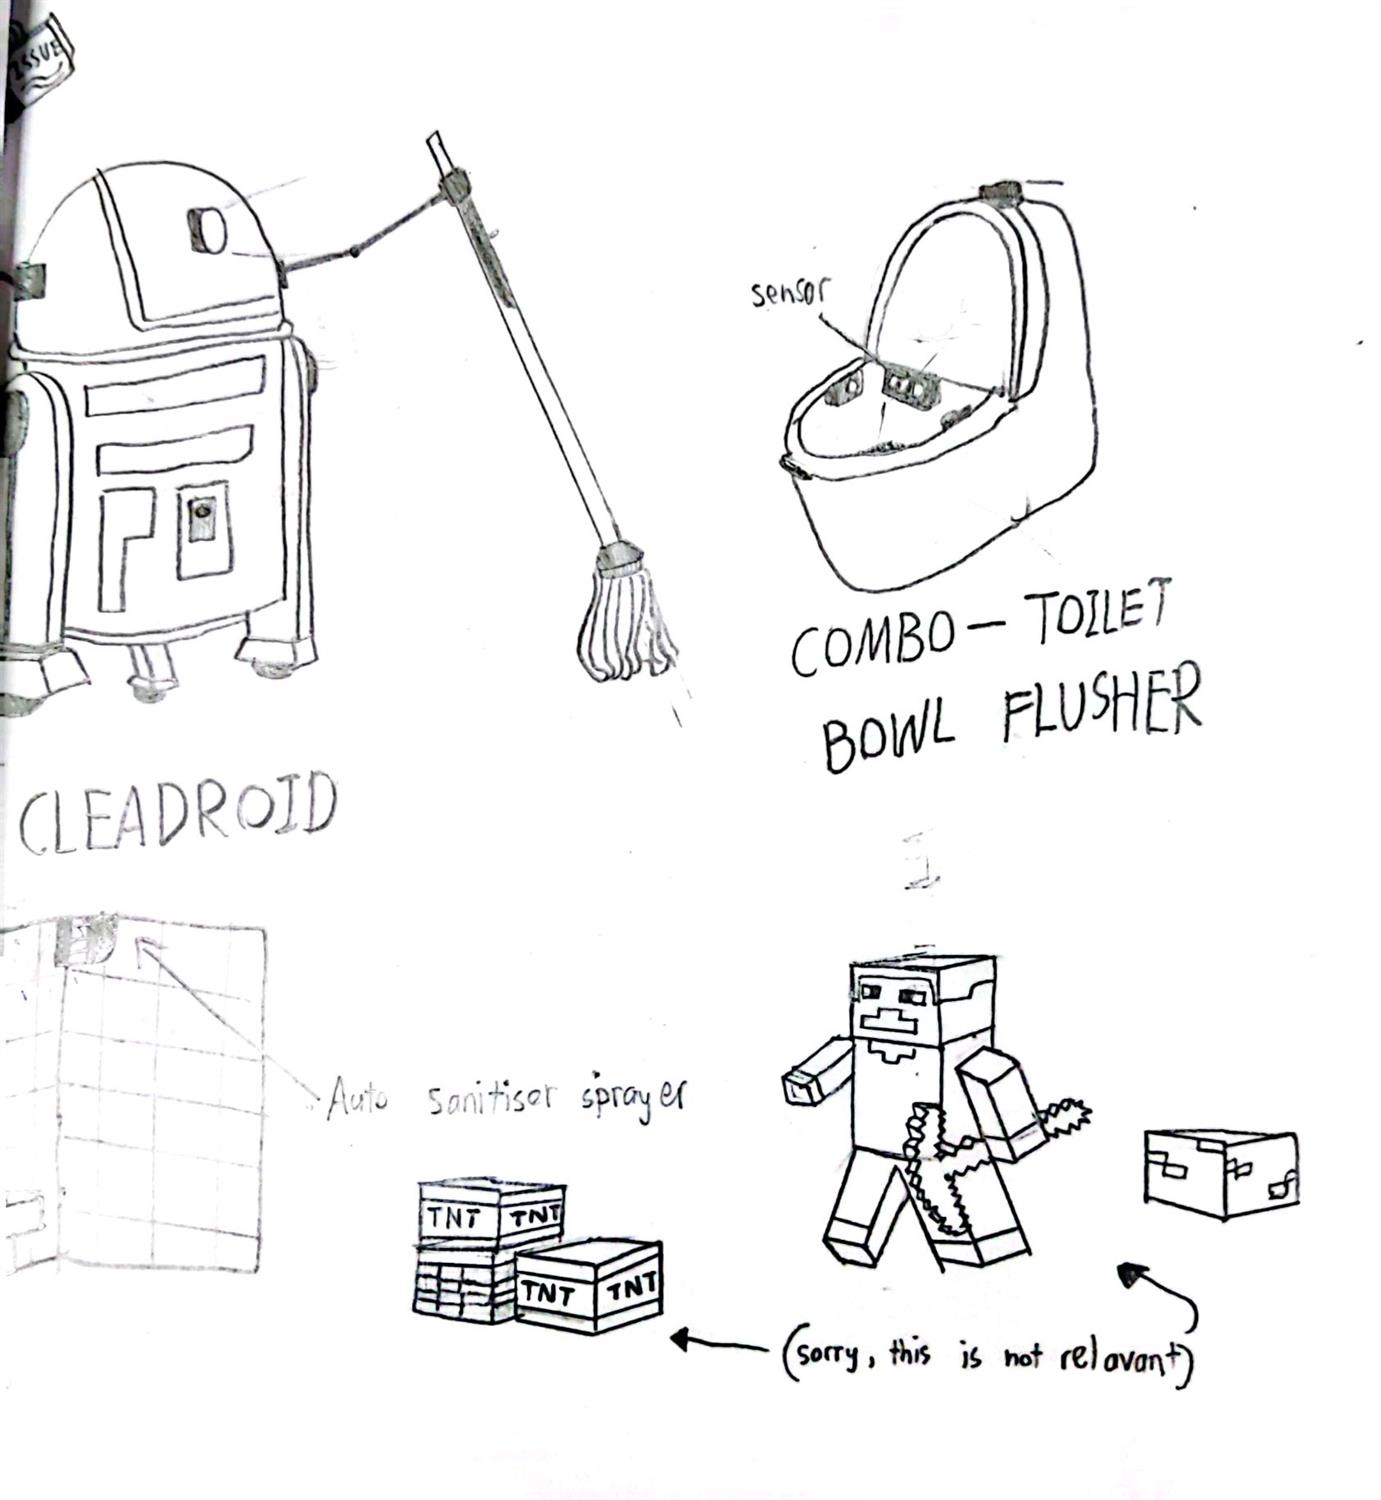 ISSUE
sensor
COMBO - TOILET
BOWL FLUSHER
CLEADROID
Auto sanitisor sprayer
TNT TNT
TNT TNT
(sorry, this is not relavant)